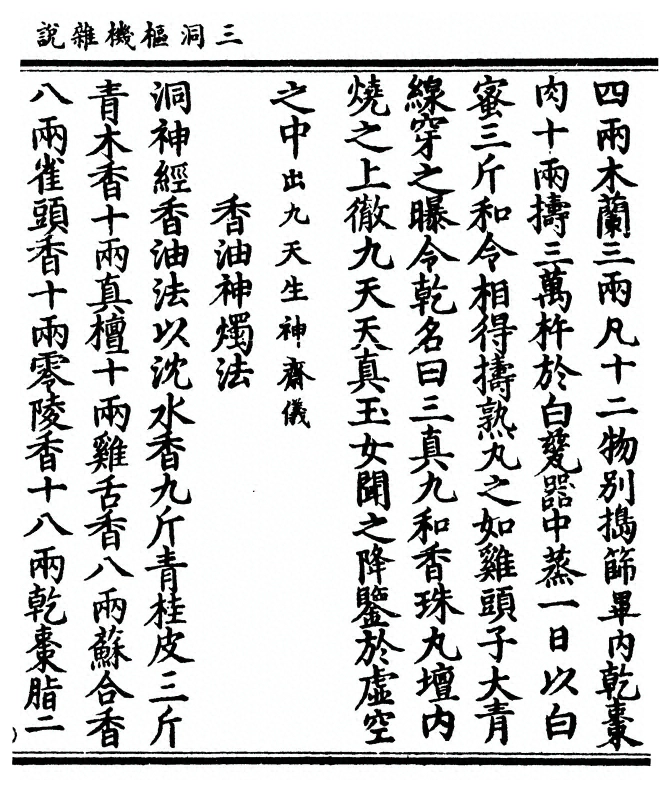 三洞樞機雜說
四兩木蘭三兩凡十二物別搗篩畢內乾棗
肉十兩擣三萬杵於白甆器中蒸一日以白
蜜三斤和令相得擣熟丸之如雞頭子大青
線穿之曝令乾名曰三真九和香珠丸壇內
燒之上徹九天天真玉女聞之降鑒於虛空
之中出九天生神齋儀
香油神燭法
洞神經香油法以沈水香九斤青桂皮三斤
青木香十兩真檀十兩雞舌香八兩蘇合香
八兩雀頭香十兩零陵香十八兩乾棗脂二